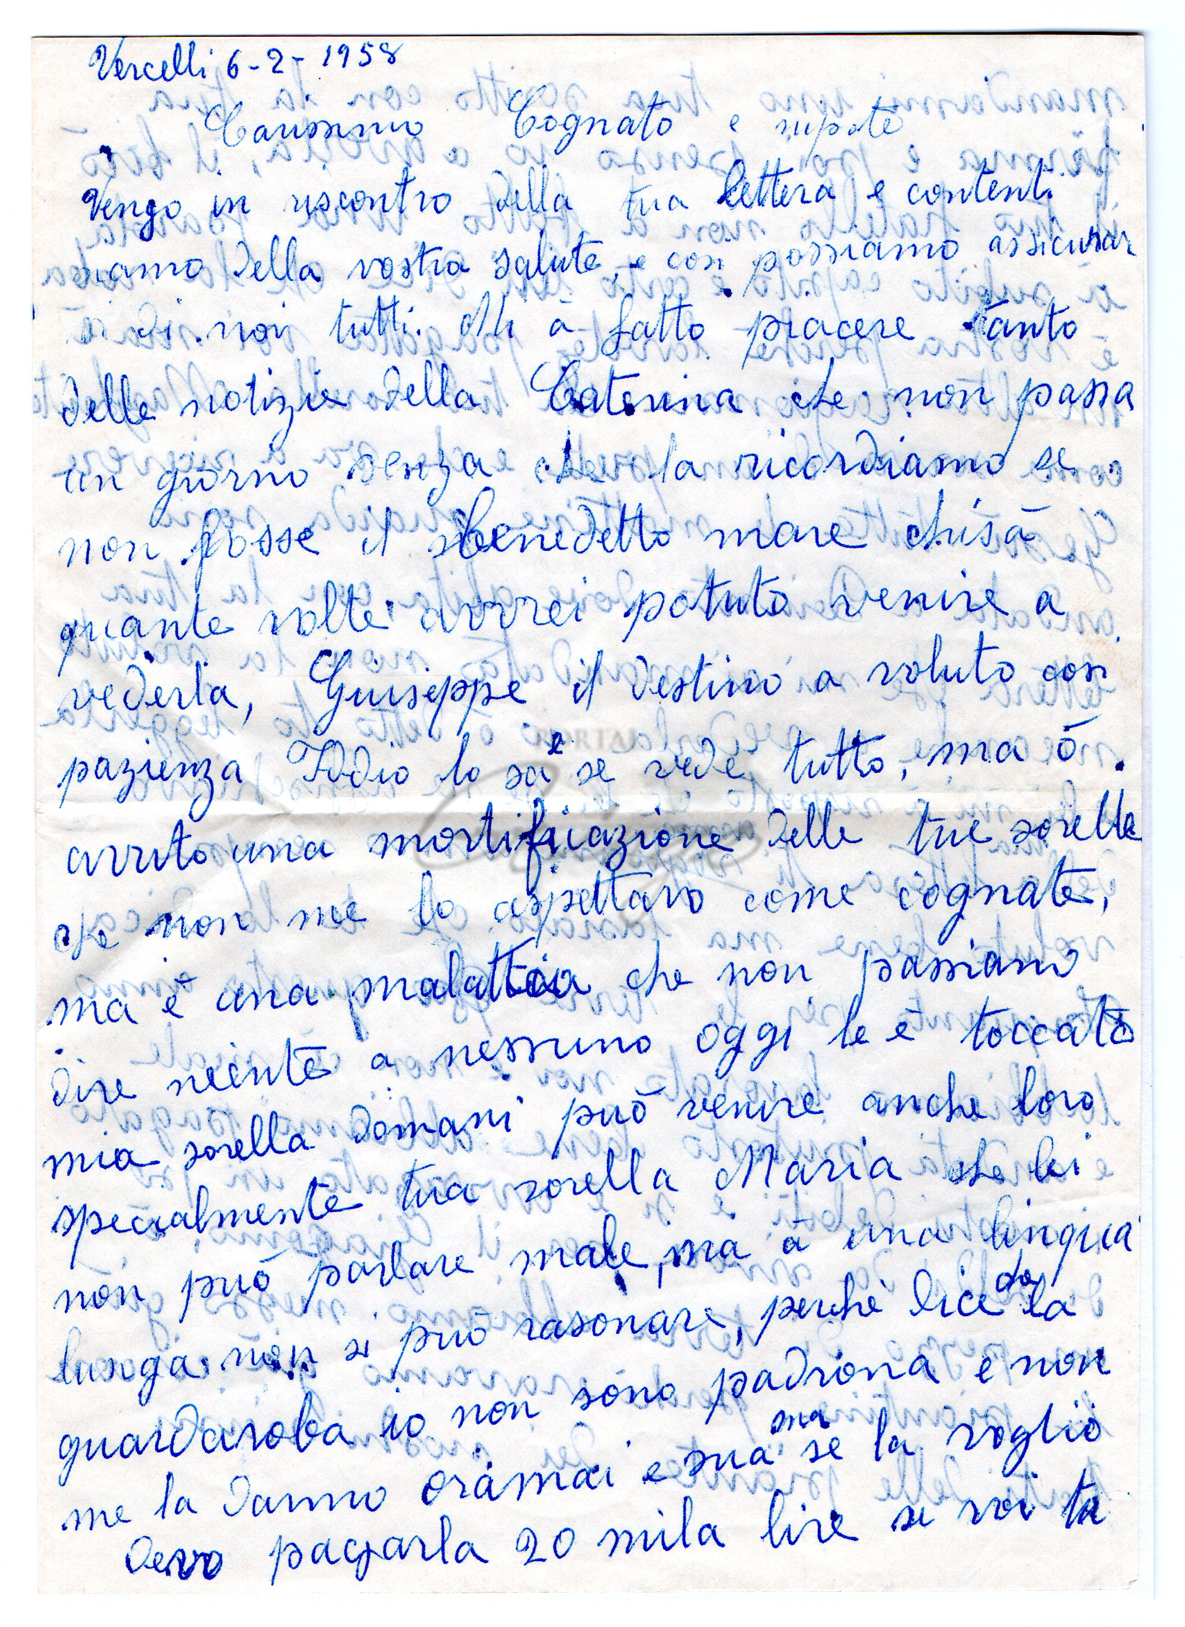 Vercelli 6-2-1958
Carissimo Cognato e nipote
Vengo in riscontro della tua lettera e contenti
siamo della vostra salute, e cosi possiamo assicurar
vi di noi tutti. Mi à fatto piacere tanto
delle notizie della Caterina che non passa
un giorno senza che la ricordiamo se
non fosse il benedetto mare chisà
quante volte avrei potuto venire a
vederla, Guiseppe il destino a voluto cosi
pazienza Iddio lo sa e se vede tutto, ma ò
avuto una mortificazione delle tue sorelle
che non me lo aspettavo come cognate,
ma è una malattia che non passiamo
dire neiente a nessuno oggi le è toccato
mia sorella domani può venire anche loro
specialmente tua sorella Maria che lei
non può parlare male, ma à una lingua
lunga non si può rasonare, perché dice che la
guardaroba io non sono padrona e non
me la danno oramai e sua ma se la voglio
devo pagarla 20 mila lire se voi te